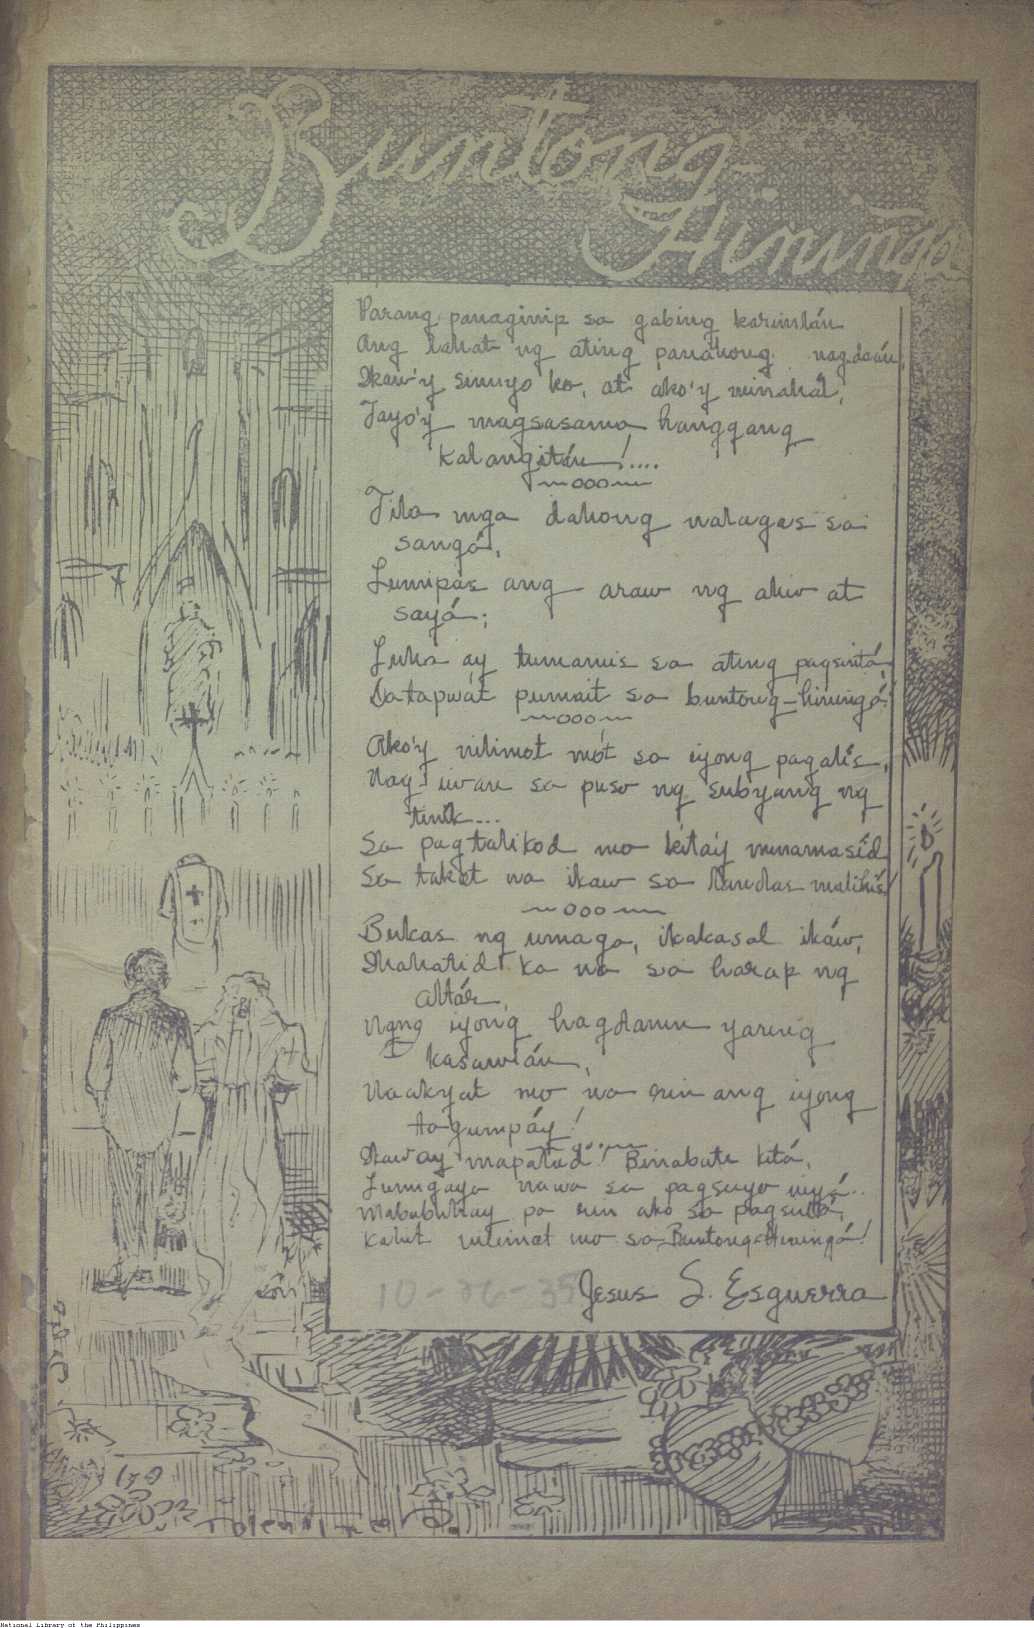 Buntong-
Hininga
Parang panaginip sa gabing karimlán
Ang lahat ng ating panahong nagdaán,
Ikaw'y sinuyo ko, at ako'y minahál,
Tayo'y magsasama hanggang
kalangitán!....
~ooo~
Tila mga dahong nalagas sa
sangá,
Lumipas ang araw ng aliw at
sayá;
Luha ay tumamis sa ating pagsintá,
Datapwát pumait sa buntong-hiningá!
~ooo~
Ako'y nilimot mó't sa iyong pagalís,
Nag-iwan sa puso ng subyang ng
tinik...
Sa pagtalikod mo kita'y minamasíd
Sa takot na ikaw sa landas malihis!
~ooo~
Bukas ng umaga, ikakasal ikáw,
Ihahatid ka na sa harap ng
altár,
Ngng iyong hagdanin yaring
kasawián,
Naakyat mo na rin ang iyong
tagumpáy!
~ooo~
Ikaw ay mapalad! Binabati kitá,
Lumigaya nawa sa pagsuyo niyá...
Mabubuhay pa rin ako sa pagsinta,
Kahit nilimot mo sa Buntong-Hiningá!
Jesus S. Esguerra
10-26-35
Tolentino
National Library of the Philippines